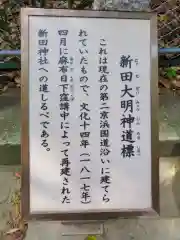 新田大明神道標
これは現在の第二京浜国道沿いに建てら
れていたもので、文化十四年（一八一七年）
四月に麻布日下窪講中によって再建された
新田神社への道しるべである。